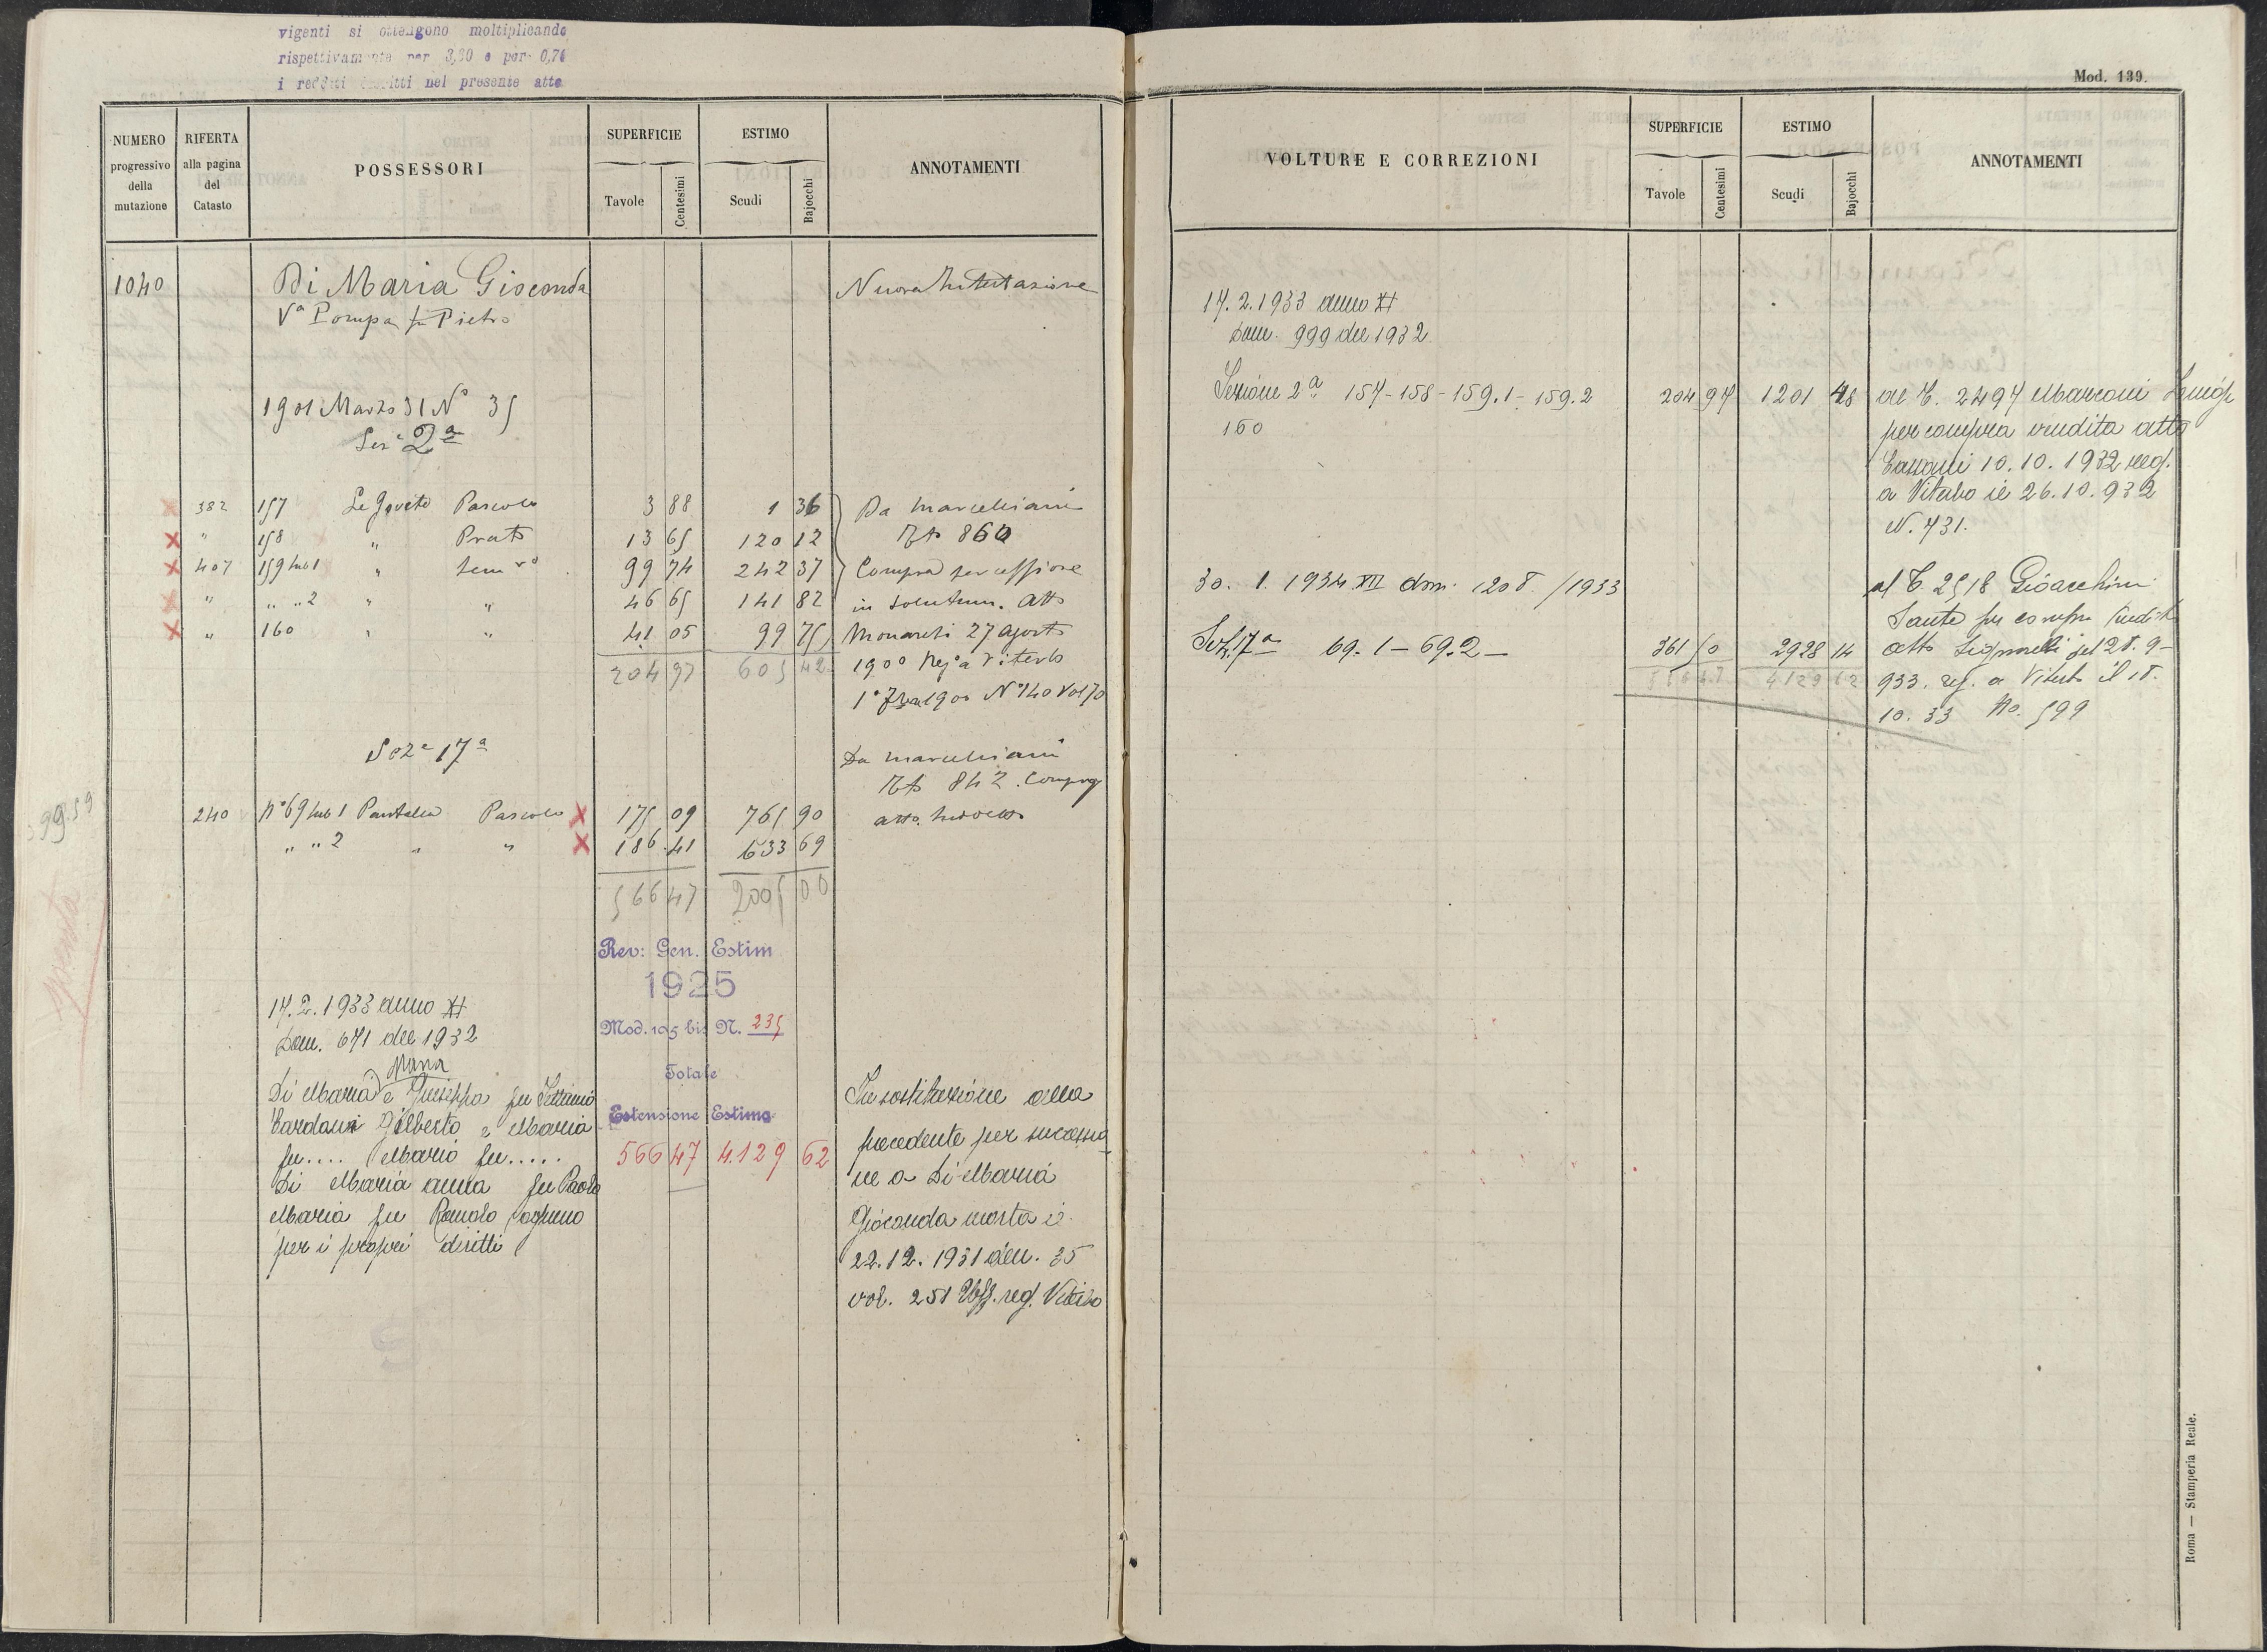 vigenti si ottengono moltiplicando
rispettivamente per 3,30 e per 0,74
i redditi iscritti nel presente atto
NUMERO progressivo della mutazione
RIFERTA alla pagina del Catasto
POSSESSORI
SUPERFICIE
Tavole Centesimi
ESTIMO
Scudi Bajocchi
ANNOTAMENTI
1040 Di Maria Gioconda Nuova Intestazione
Va Pompa fu Pietro
1901 Marzo 31 No 35
Sez e 2a
382 157 Pascolo 3 88 1 36 Da Marcelliani
" 158 " Prato 13 65 120 12 Rto 860
407 159 sub 1 " Sem vo 99 74 242 37 Compra per cessione
" " " 2 " " 46 65 141 82 in solutum. Atto
" 160 " " 41 05 99 75 Monarchi 27 agosto
204 97 605 42 1900 Rega Viterbo
1o 7bre 1900 No 140 Vol 70
Sez e 17a
Da Marcelliani
Rto 842. Compra
240 No 69 sub 1 Pantalla Pascolo 175 09 765 90 atto suddetto
" " 2 " " 186 41 633 69
566 47 2005 00
99.59
Rev: Gen. Estim
1925
Mod. 105 bis N. 235
Totale
Estensione Estimo
566 47 4.129 62
17.2.1933 anno XI
Dom. 671 del 1932
Maria
Di Maria e Giuseppa fu Settimio
Cardoni Gilberto e Maria
fu.... Mario fu.....
Di Maria Anna fu Paolo
Maria fu Romolo, ognuno
per i propri diritti
In sostituzione della
precedente per successio
ne a Di Maria
Gioconda morta il
22.12.1931 den. 35
vol. 251 Uff. reg. Viterbo
Mod. 139.
VOLTURE E CORREZIONI
SUPERFICIE
Tavole Centesimi
ESTIMO
Scudi Bajocchi
ANNOTAMENTI
17.2.1933 anno XI
Dom. 999 del 1932.
Sezione 2a 157-158-159.1-159.2 204 97 1201 48 al C. 2497 Marconi Luigi
160 per compra vendita atto
10.10.1932 reg.
a Viterbo il 26.10.932
N. 731.
30. 1. 1934 XII dom. 1208/1933 al C. 2518 Gioacchini
Sante per compra vendita
Sez. 17a 69.1-69.2- 361 50 2928 14 atto Signorelli del 28.9-
566 47 4129 62 933. reg. a Viterbo il 18.
10.33 No. 599
Roma — Stamperia Reale.